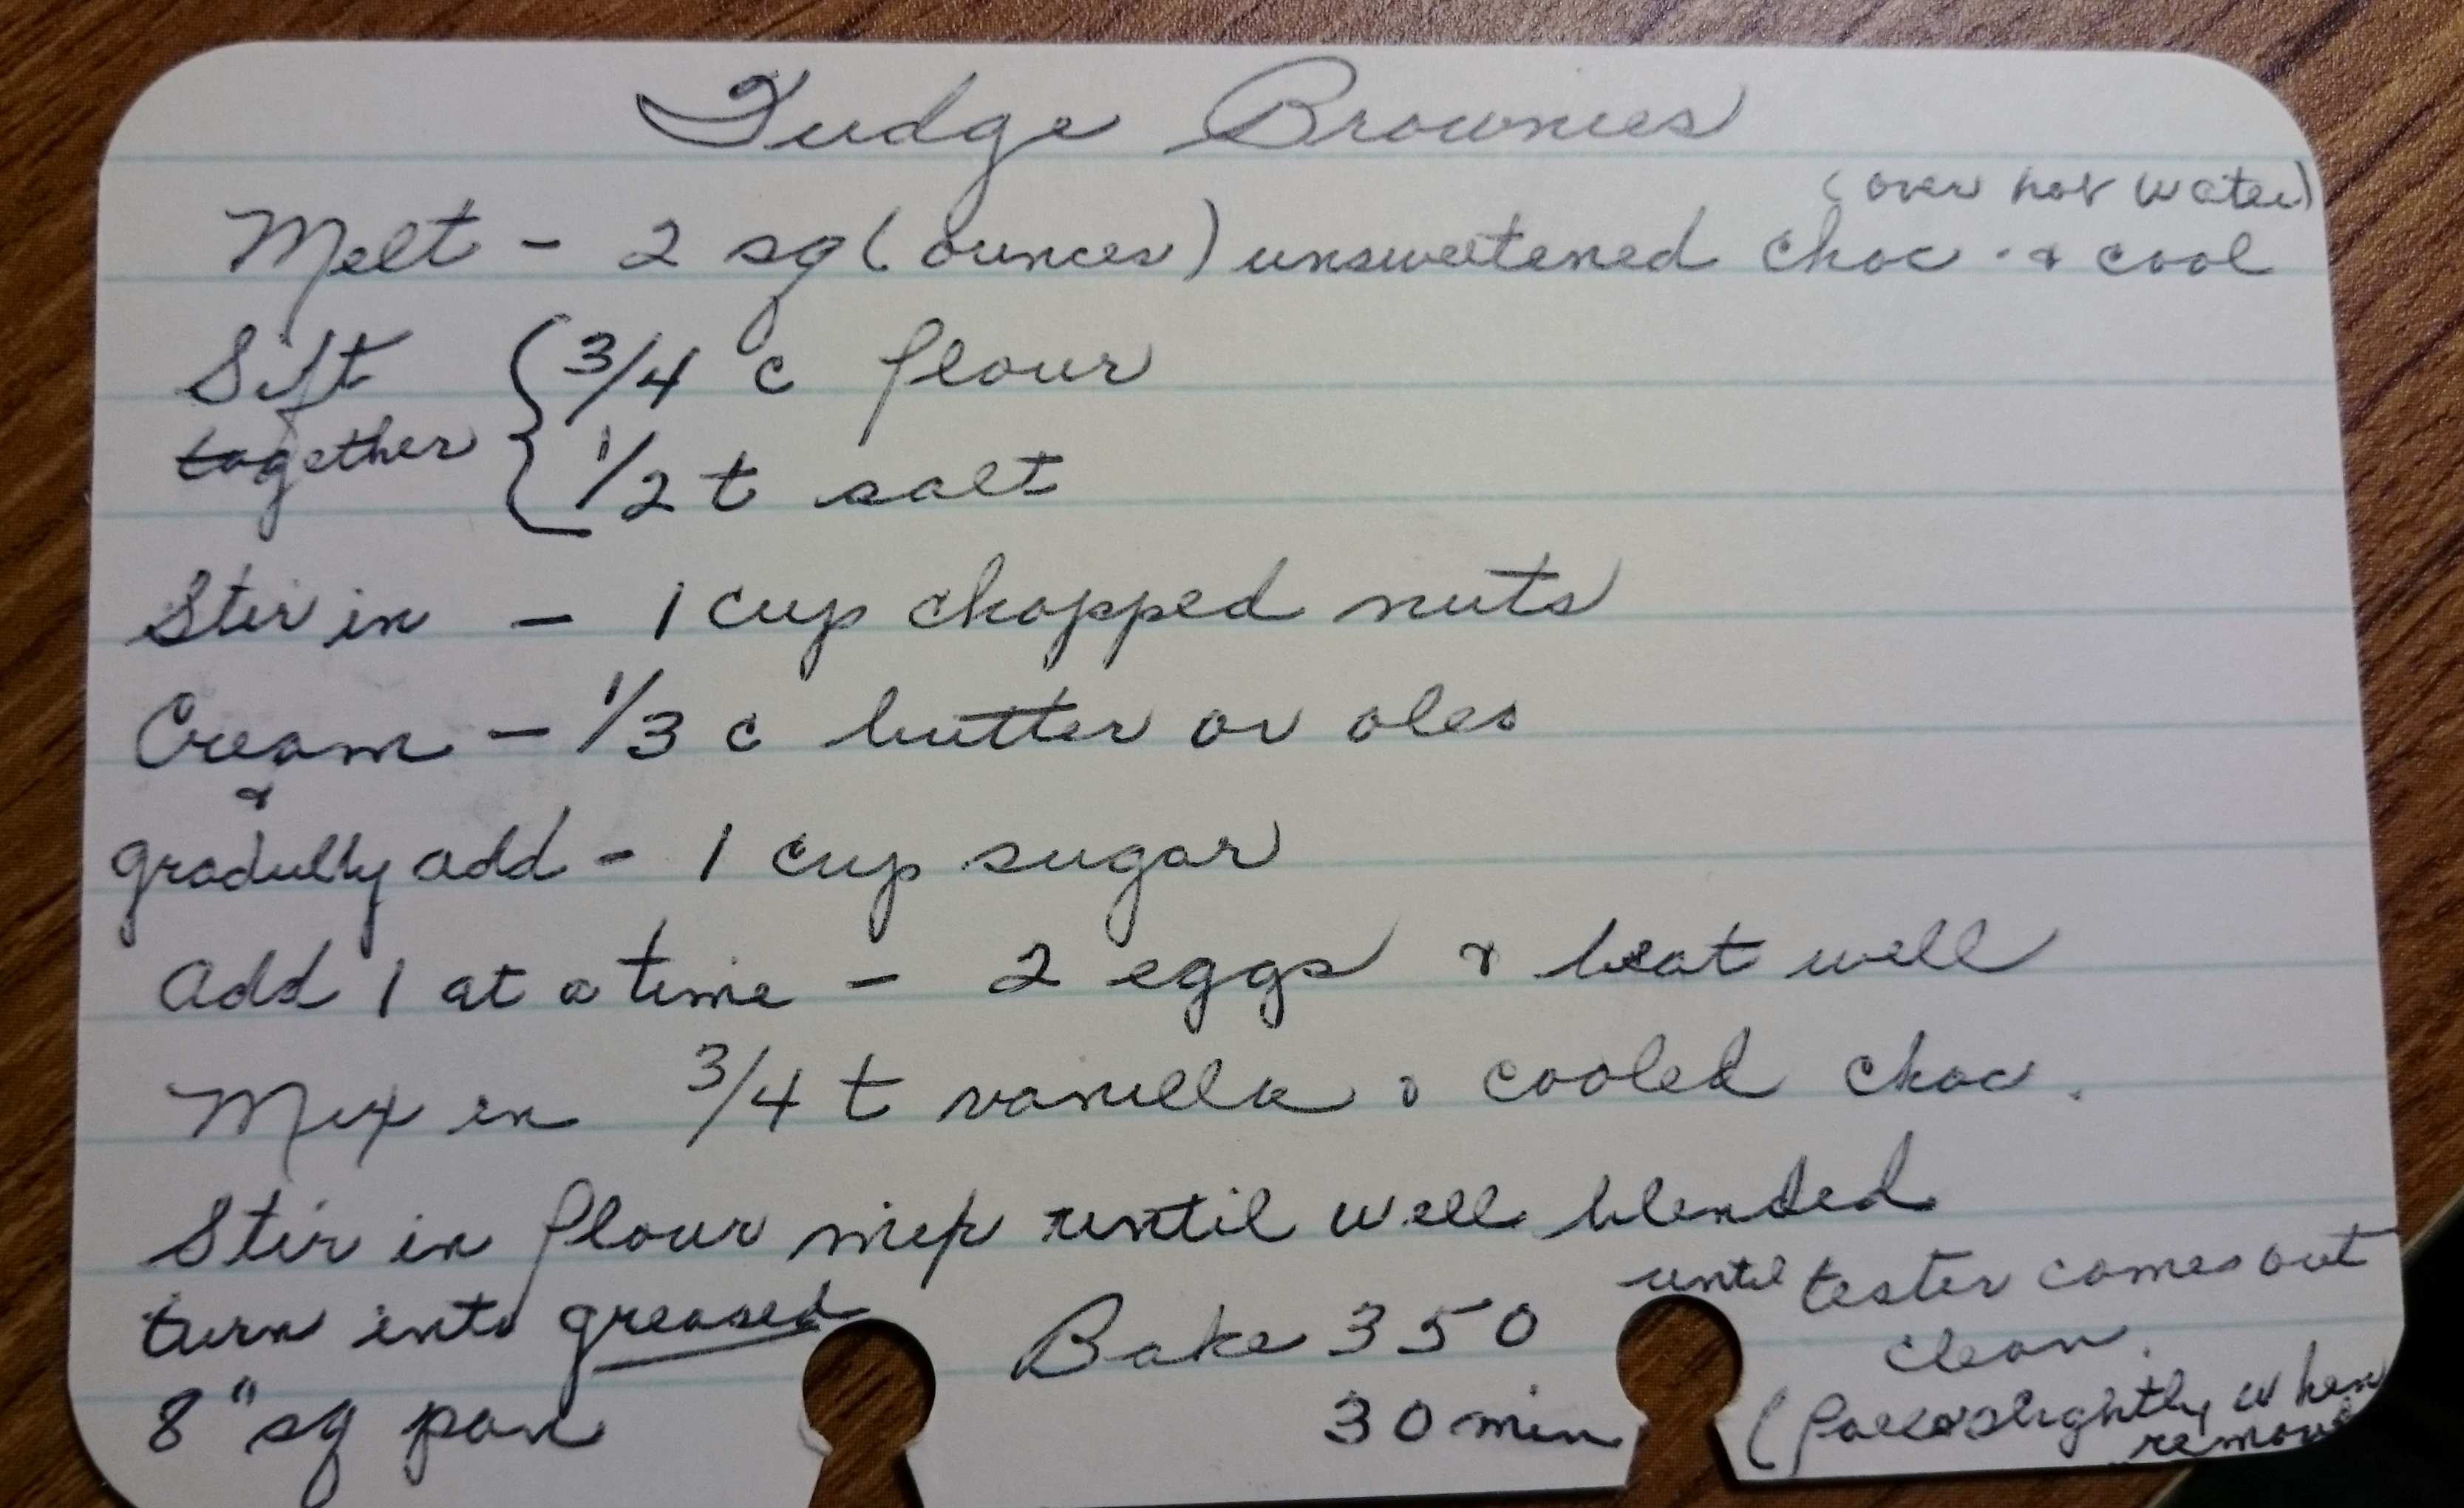 Fudge Brownies
(over hot water)
Melt - 2 sq (ounces) unsweetened choc. & cool
Sift together { 3/4 c flour
1/2 t salt
Stir in - 1 cup chopped nuts
Cream - 1/3 c butter or oleo
&
gradully add - 1 cup sugar
Add 1 at a time - 2 eggs & beat well
Mix in 3/4 t vanilla & cooled choc.
Stir in flour mix until well blended
turn into greased
8" sq pan
Bake 350
30 min
until tester comes out
clean.
(falls slightly when